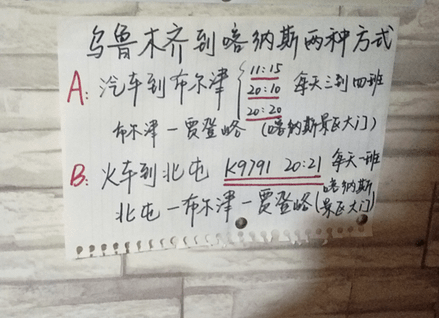 乌鲁木齐到喀纳斯两种方式
A: 汽车到布尔津 11:15 每天三到四班
20:10
20:20
布尔津一贾登峪 (喀纳斯景区大门)
B: 火车到北屯 K9791 20:21 每天一班
北屯一布尔津一贾登峪 (喀纳斯景区大门)